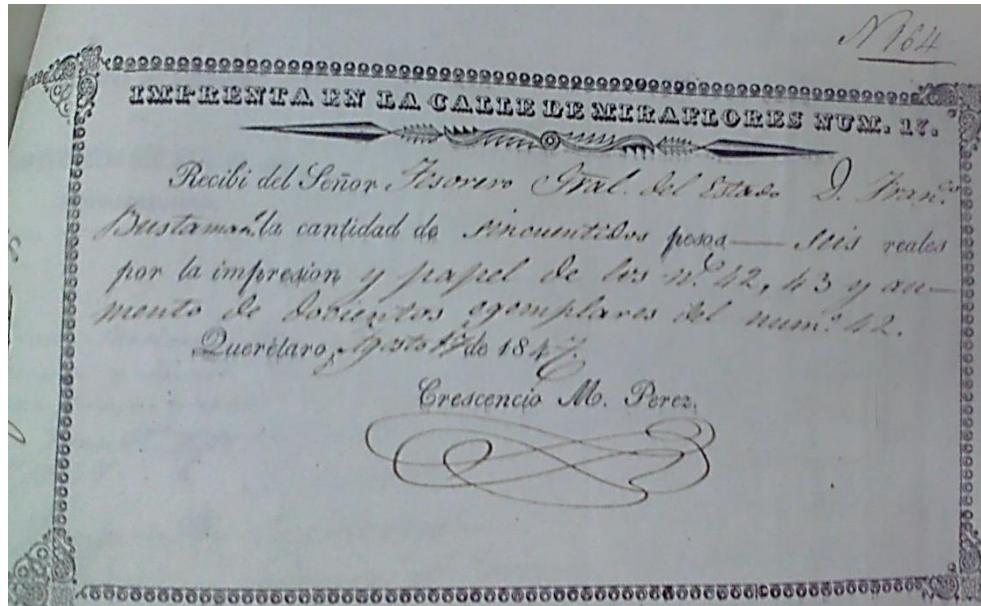 N 164
IMPRENTA EN LA CALLE DE MIRAFLORES NUM. 17.
Recibi del Señor Tesorero Gral. del Estado D. Fran.co
Bustaman.te la cantidad de sincuentidos pesos — seis reales
por la impresion y papel de los n.s 42, 43 y au-
mento de docientos egemplares del num.o 42.
Querétaro, Agosto 17 de 1847.
Crescencio M. Perez.